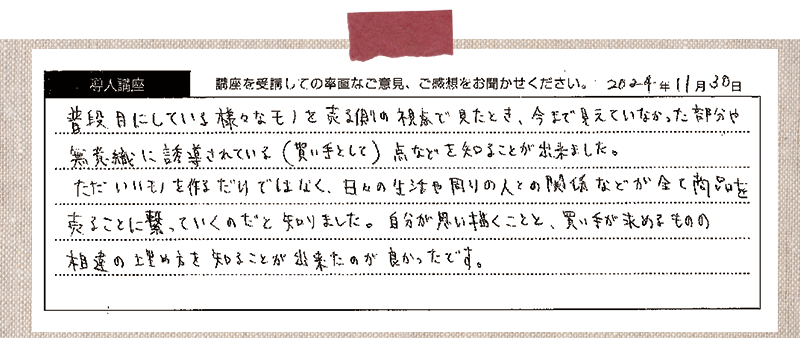 導入講座 講座を受講しての率直なご意見、ご感想をお聞かせください。 2024年11月30日
普段目にしている様々なモノを売る側の視点で見たとき、今まで見えていなかった部分や
無意識に誘導されている(買い手として)点などを知ることが出来ました。
ただいいモノを作るだけではなく、日々の生活や周りの人との関係などが全て商品を
売ることに繋っていくのだと知りました。自分が思い描くことと、買い手が求めるものの
相違の埋め方を知ることが出来たのが良かったです。